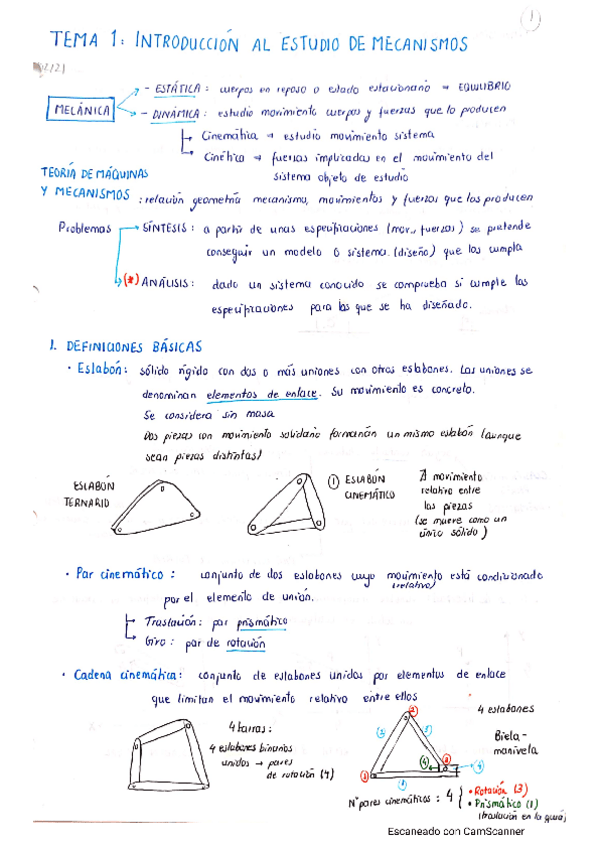 1
TEMA 1: INTRODUCCIÓN AL ESTUDIO DE MECANISMOS
MECÁNICA
- ESTÁTICA: cuerpos en reposo o estado estacionario → EQUILIBRIO
- DINÁMICA: estudio movimiento cuerpos y fuerzas que lo producen
Cinemática → estudio movimiento sistema
Cinético → fuerzas implicadas en el movimiento del
sistema objeto de estudio
TEORÍA DE MÁQUINAS
Y MECANISMOS : relación geometría mecanismo, movimientos y fuerzas que los producen
Problemas
SÍNTESIS: a partir de unas especificaciones (mov., fuerzas) se pretende
conseguir un modelo o sistema (diseño) que los cumpla
(*) ANÁLISIS: dado un sistema conocido se comprueba si cumple las
especificaciones para las que se ha diseñado.
1. DEFINICIONES BÁSICAS
• Eslabón: sólido rígido con dos o más uniones con otros eslabones. Las uniones se
denominan elementos de enlace. Su movimiento es concreto.
Se considera sin masa
Dos piezas con movimiento solidario formarían un mismo eslabón (aunque
sean piezas distintas)
ESLABÓN
TERNARIO
1 ESLABÓN
CINEMÁTICO
∄ movimiento
relativo entre
las piezas
(se mueve como un
único sólido)
• Par cinemático: conjunto de dos eslabones cuyo movimiento está condicionado
(relativo)
por el elemento de unión.
Traslación: par prismático
Giro: par de rotación
• Cadena cinemática: conjunto de eslabones unidos por elementos de enlace
que limitan el movimiento relativo entre ellos
4 barras:
4 eslabones binarios
unidos → pares
de rotación (4)
4 eslabones
Biela-
manivela
2
2
3
4
3
4
1
1
Nº pares cinemáticos: 4
• Rotación (3)
• Prismático (1)
(traslación en la guía)
Escaneado con CamScanner